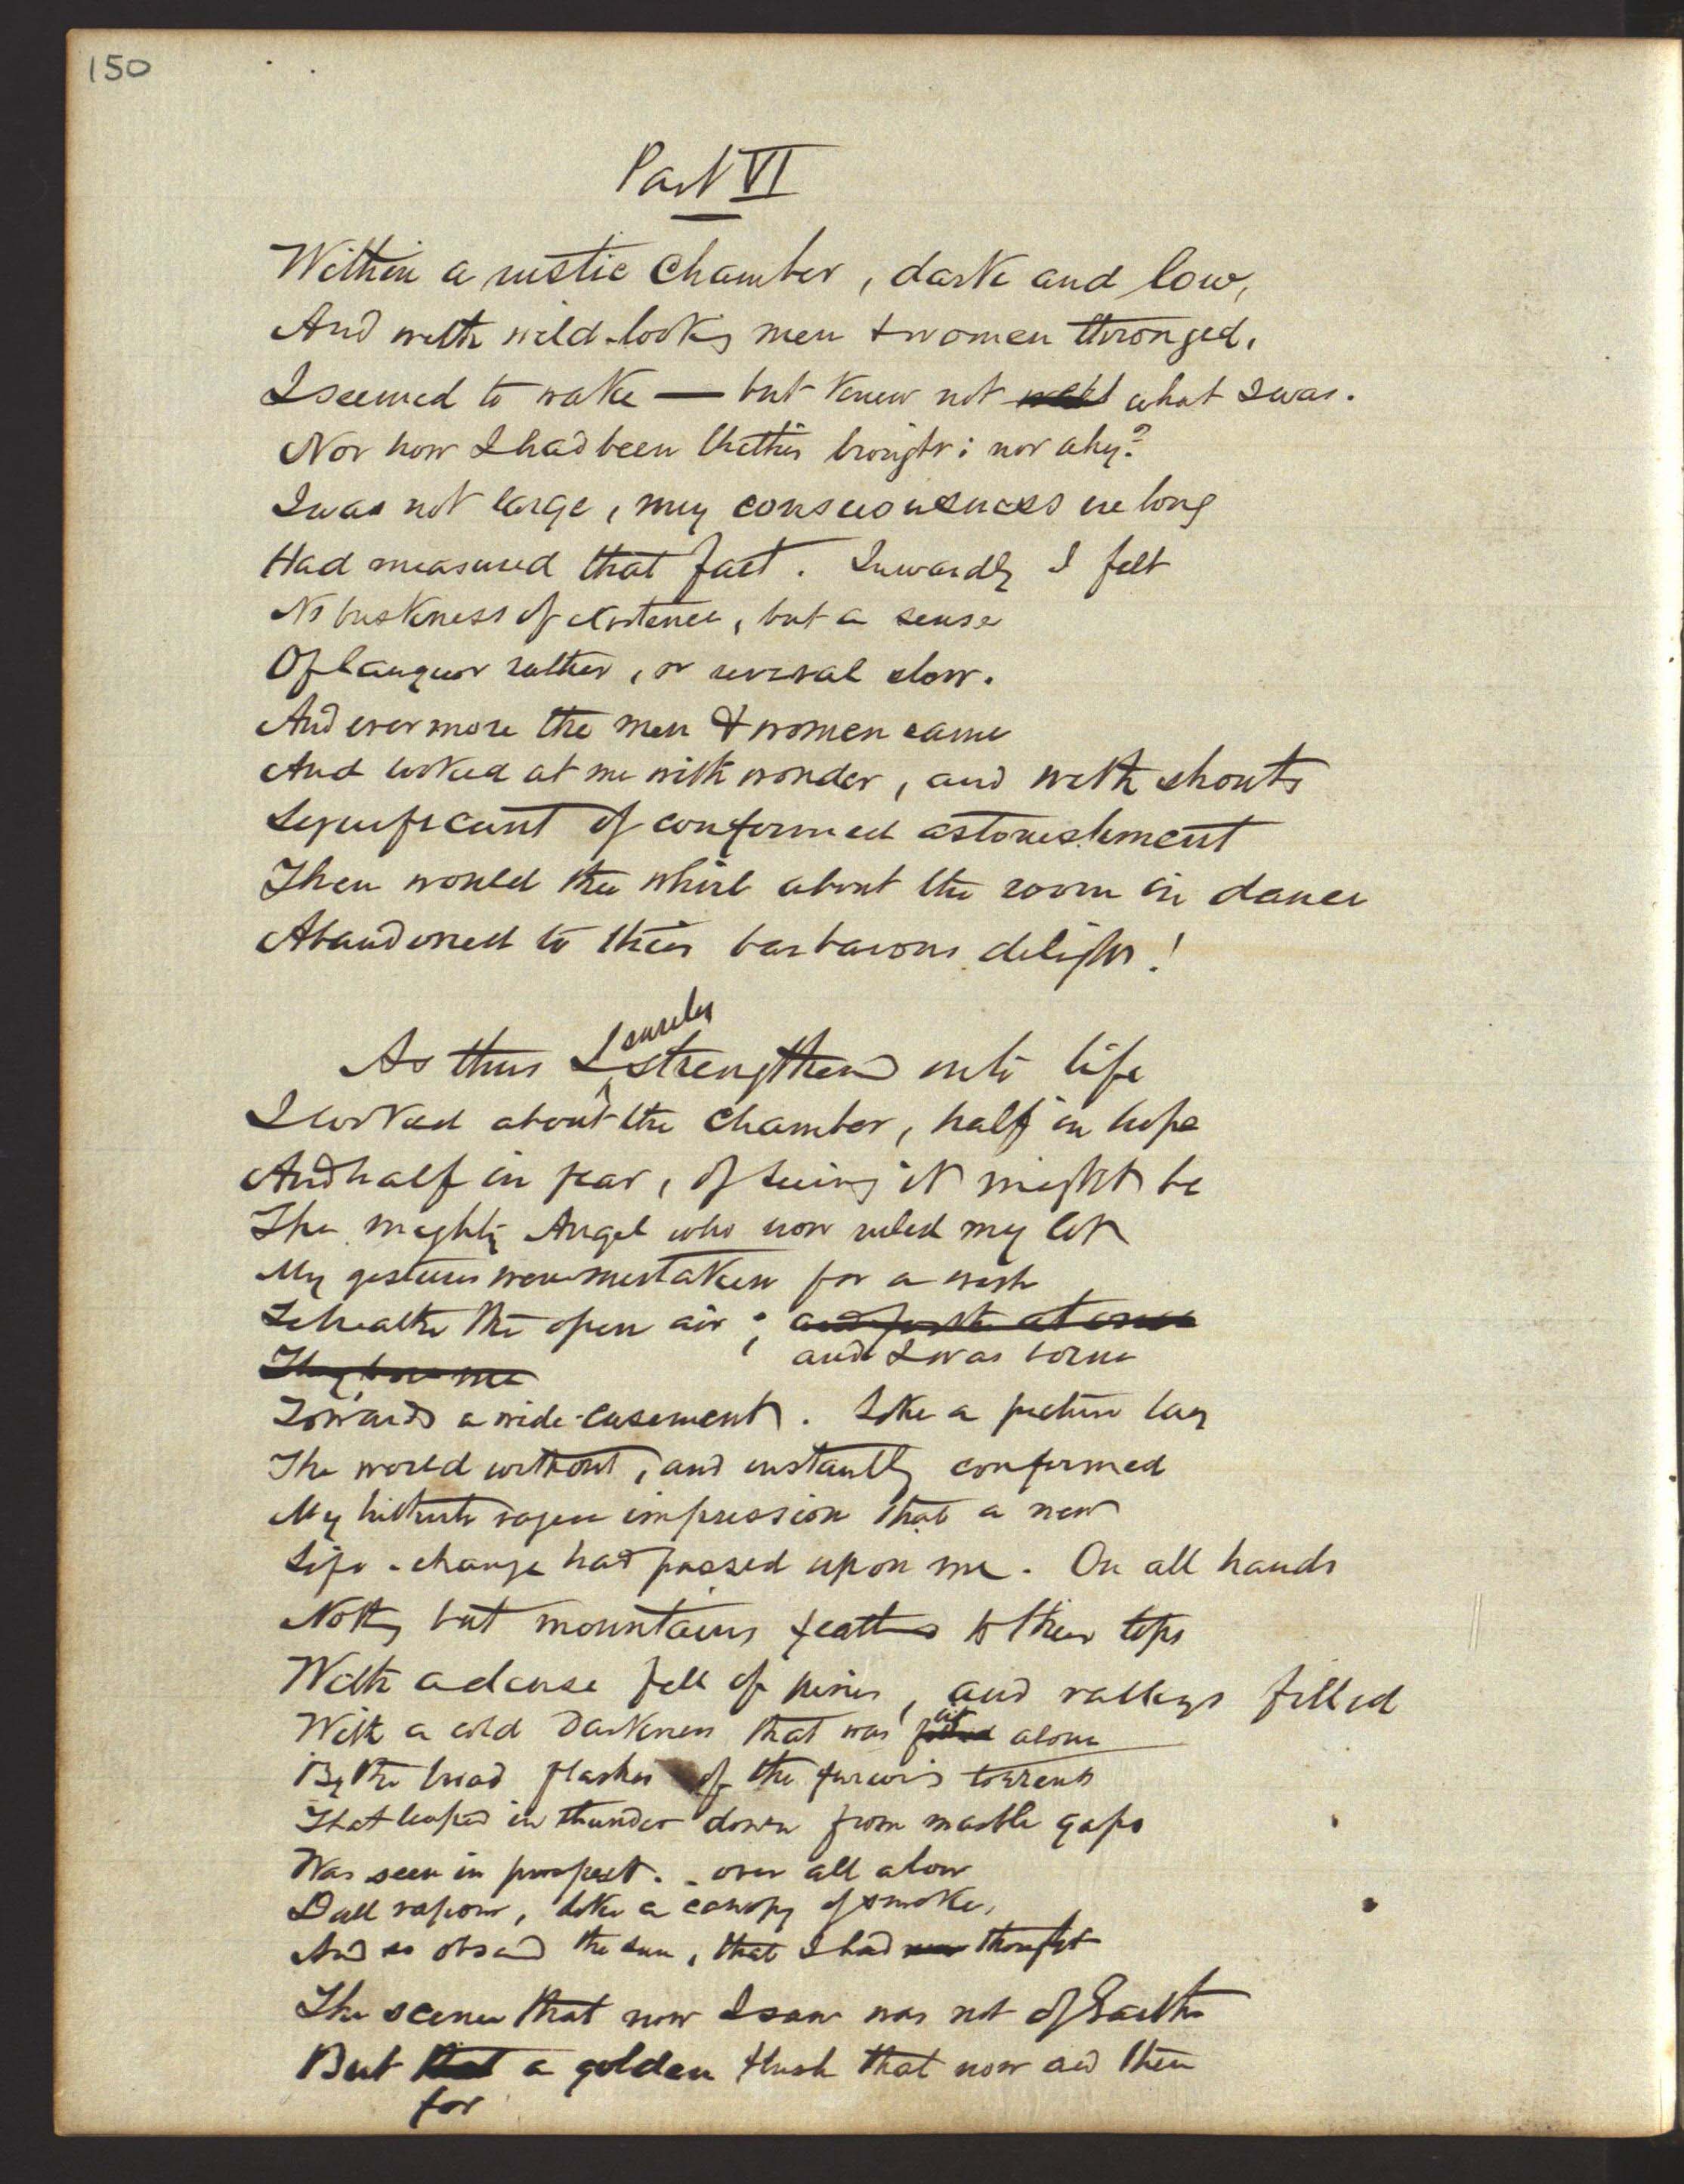 150
Part VI
Within a rustic Chamber, dark and low,
And with wild-lookg men & women thronged,
I seemed to wake — but knew not what I was.
Nor how I had been thither brought; nor why?
I was not large, my consciousness ere long
Had measured that fact. Inwardly I felt
No briskness of existence, but a sense
Of languor rather, or revival slow.
And evermore the men & women came
And looked at me with wonder, and with shouts
Significant of confirmed astonishment
Then would they whirl about the room in dance
Abandoned to their barbarous delight!
surely
As thus I strengthened into life
I looked about the Chamber, half in hope
And half in fear, of seeing it might be
The mighty Angel who now ruled my lot
My gestures were mistaken for a wish
To breathe the open air; and forth at once
and I was borne
They bore me
Towards a wide casement. Like a picture lay
The world without, and instantly confirmed
My hitherto vague impression that a new
Life-change had passed upon me. On all hands
Nothg but mountains feathd to their tops
With a dense fell of pines, and valleys filled
With a cold Darkness that was lit alone
By the broad flashes of the furious torrents
That leaped in thunder down from marble gaps
Was seen in prospect. over all a low
Dull vapour, like a canopy of smoke,
And so obscd the sun, that I had thought
The scene that now I saw was not of Earth
But a golden flush that now and then
for